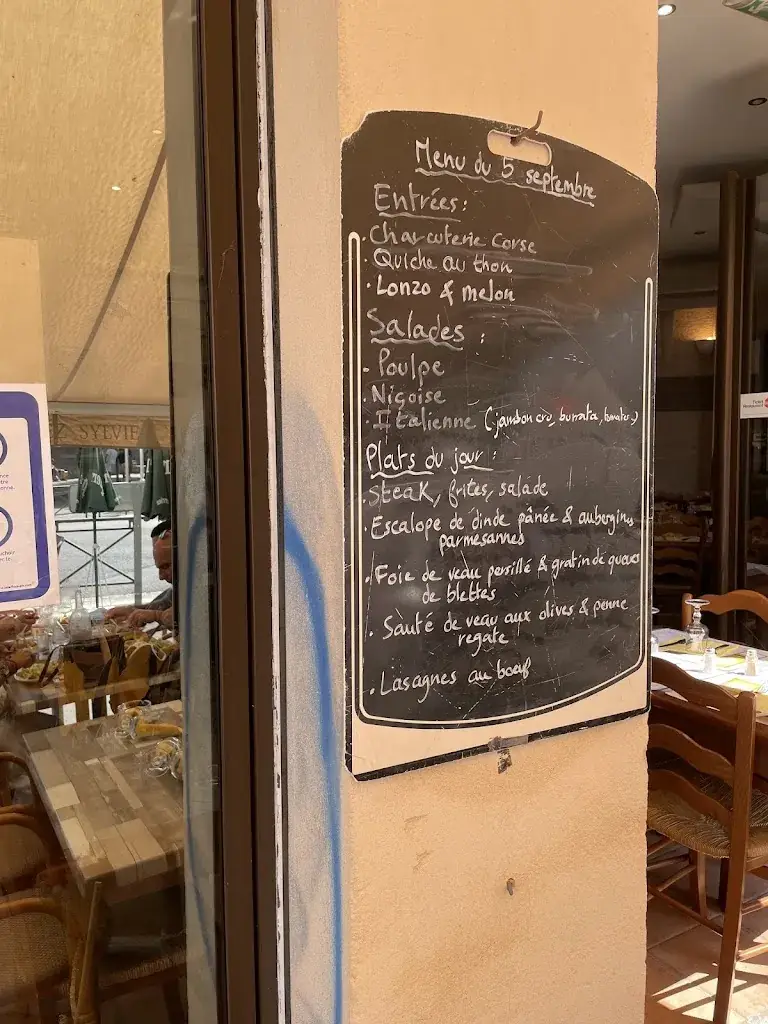 Menu du 5 septembre
Entrées :
. Charcuterie Corse
. Quiche au thon
. Lonzo & melon
Salades :
- Poulpe
- Niçoise
- Italienne (jambon cru, burrata, tomates,)
Plats du jour :
. Steak, frites, salade
. Escalope de dinde pânée & aubergines
parmesannes
. Foie de veau persillé & gratin de queues
de blettes
. Sauté de veau aux olives & penne
regate
. Lasagnes au boeuf
SYLVIE